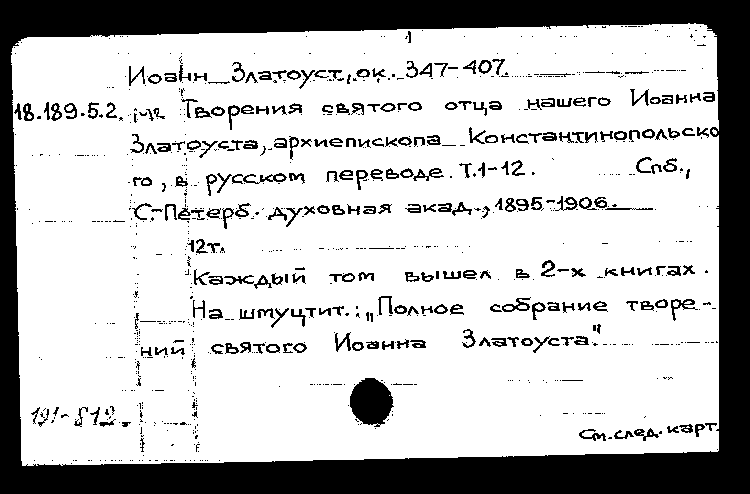 1
Иоанн Златоуст, ок. 347-407.
18.189.5.2. Творения святого отца нашего Иоанна
Златоуста, архиепископа Константинопольско
го, в русском переводе. Т.1-12. Спб.,
С.-Петерб. духовная акад., 1895-1906.
12т.
Каждый том вышел в 2-х книгах.
На шмуцтит.: „Полное собрание творе-
ний святого Иоанна Златоуста."
191-812.
См. след. карт.